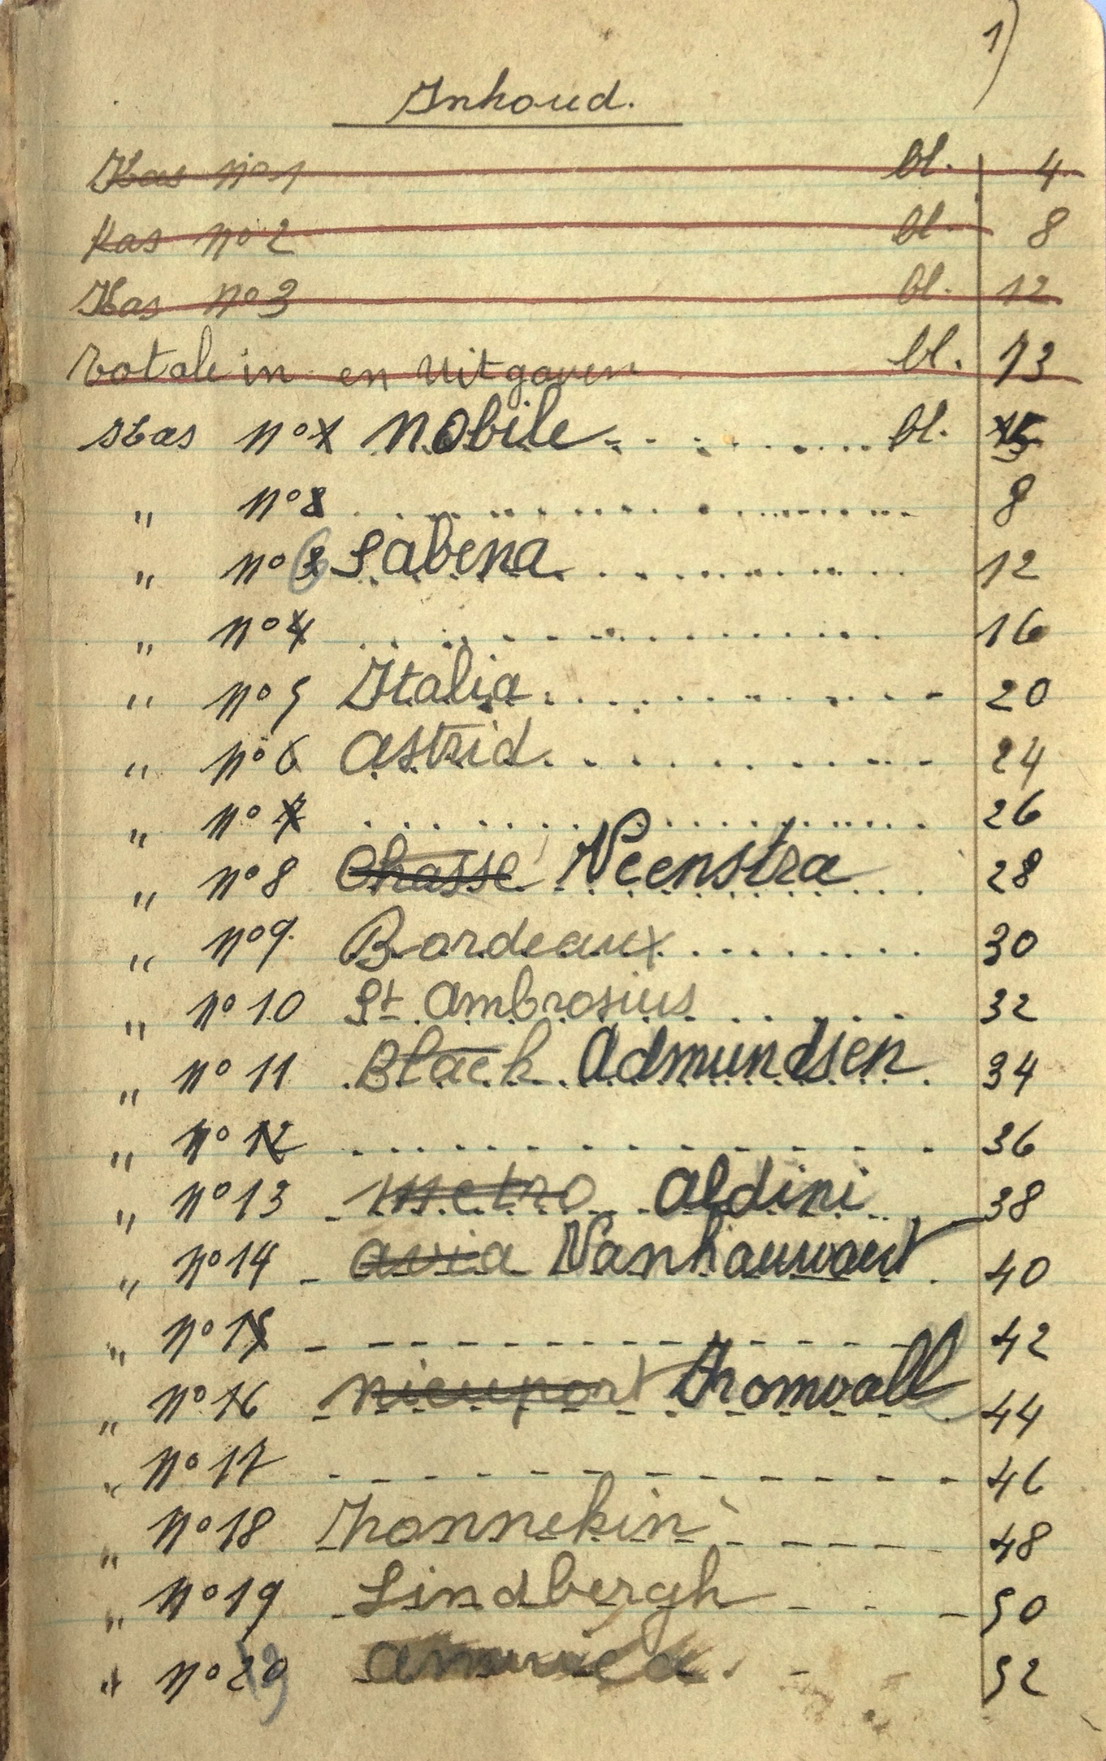 1)
Inhoud.
Kas nº 1 bl. 4
Kas nº 2 bl. 8
Kas nº 3 bl. 12
Totale in en uitgaven bl. 13
Kas nº 1 Nobile bl.
" nº 8
" nº Sabena 12
" nº 4 16
" nº 5 Italia 20
" nº 6 Astrid 24
" nº 7 26
" nº 8 Chasse Veenstra 28
" nº 9 Bordeaux 30
" nº 10 St Ambrosius 32
" nº 11 Black Admundsen 34
" nº 12 36
" nº 13 Metro Aldini 38
" nº 14 Avia Vanhauwaert 40
" nº 15 42
" nº 16 Nieuport Thomvall 44
" nº 17 46
" nº 18 48
" nº 19 Lindbergh 50
" nº 52